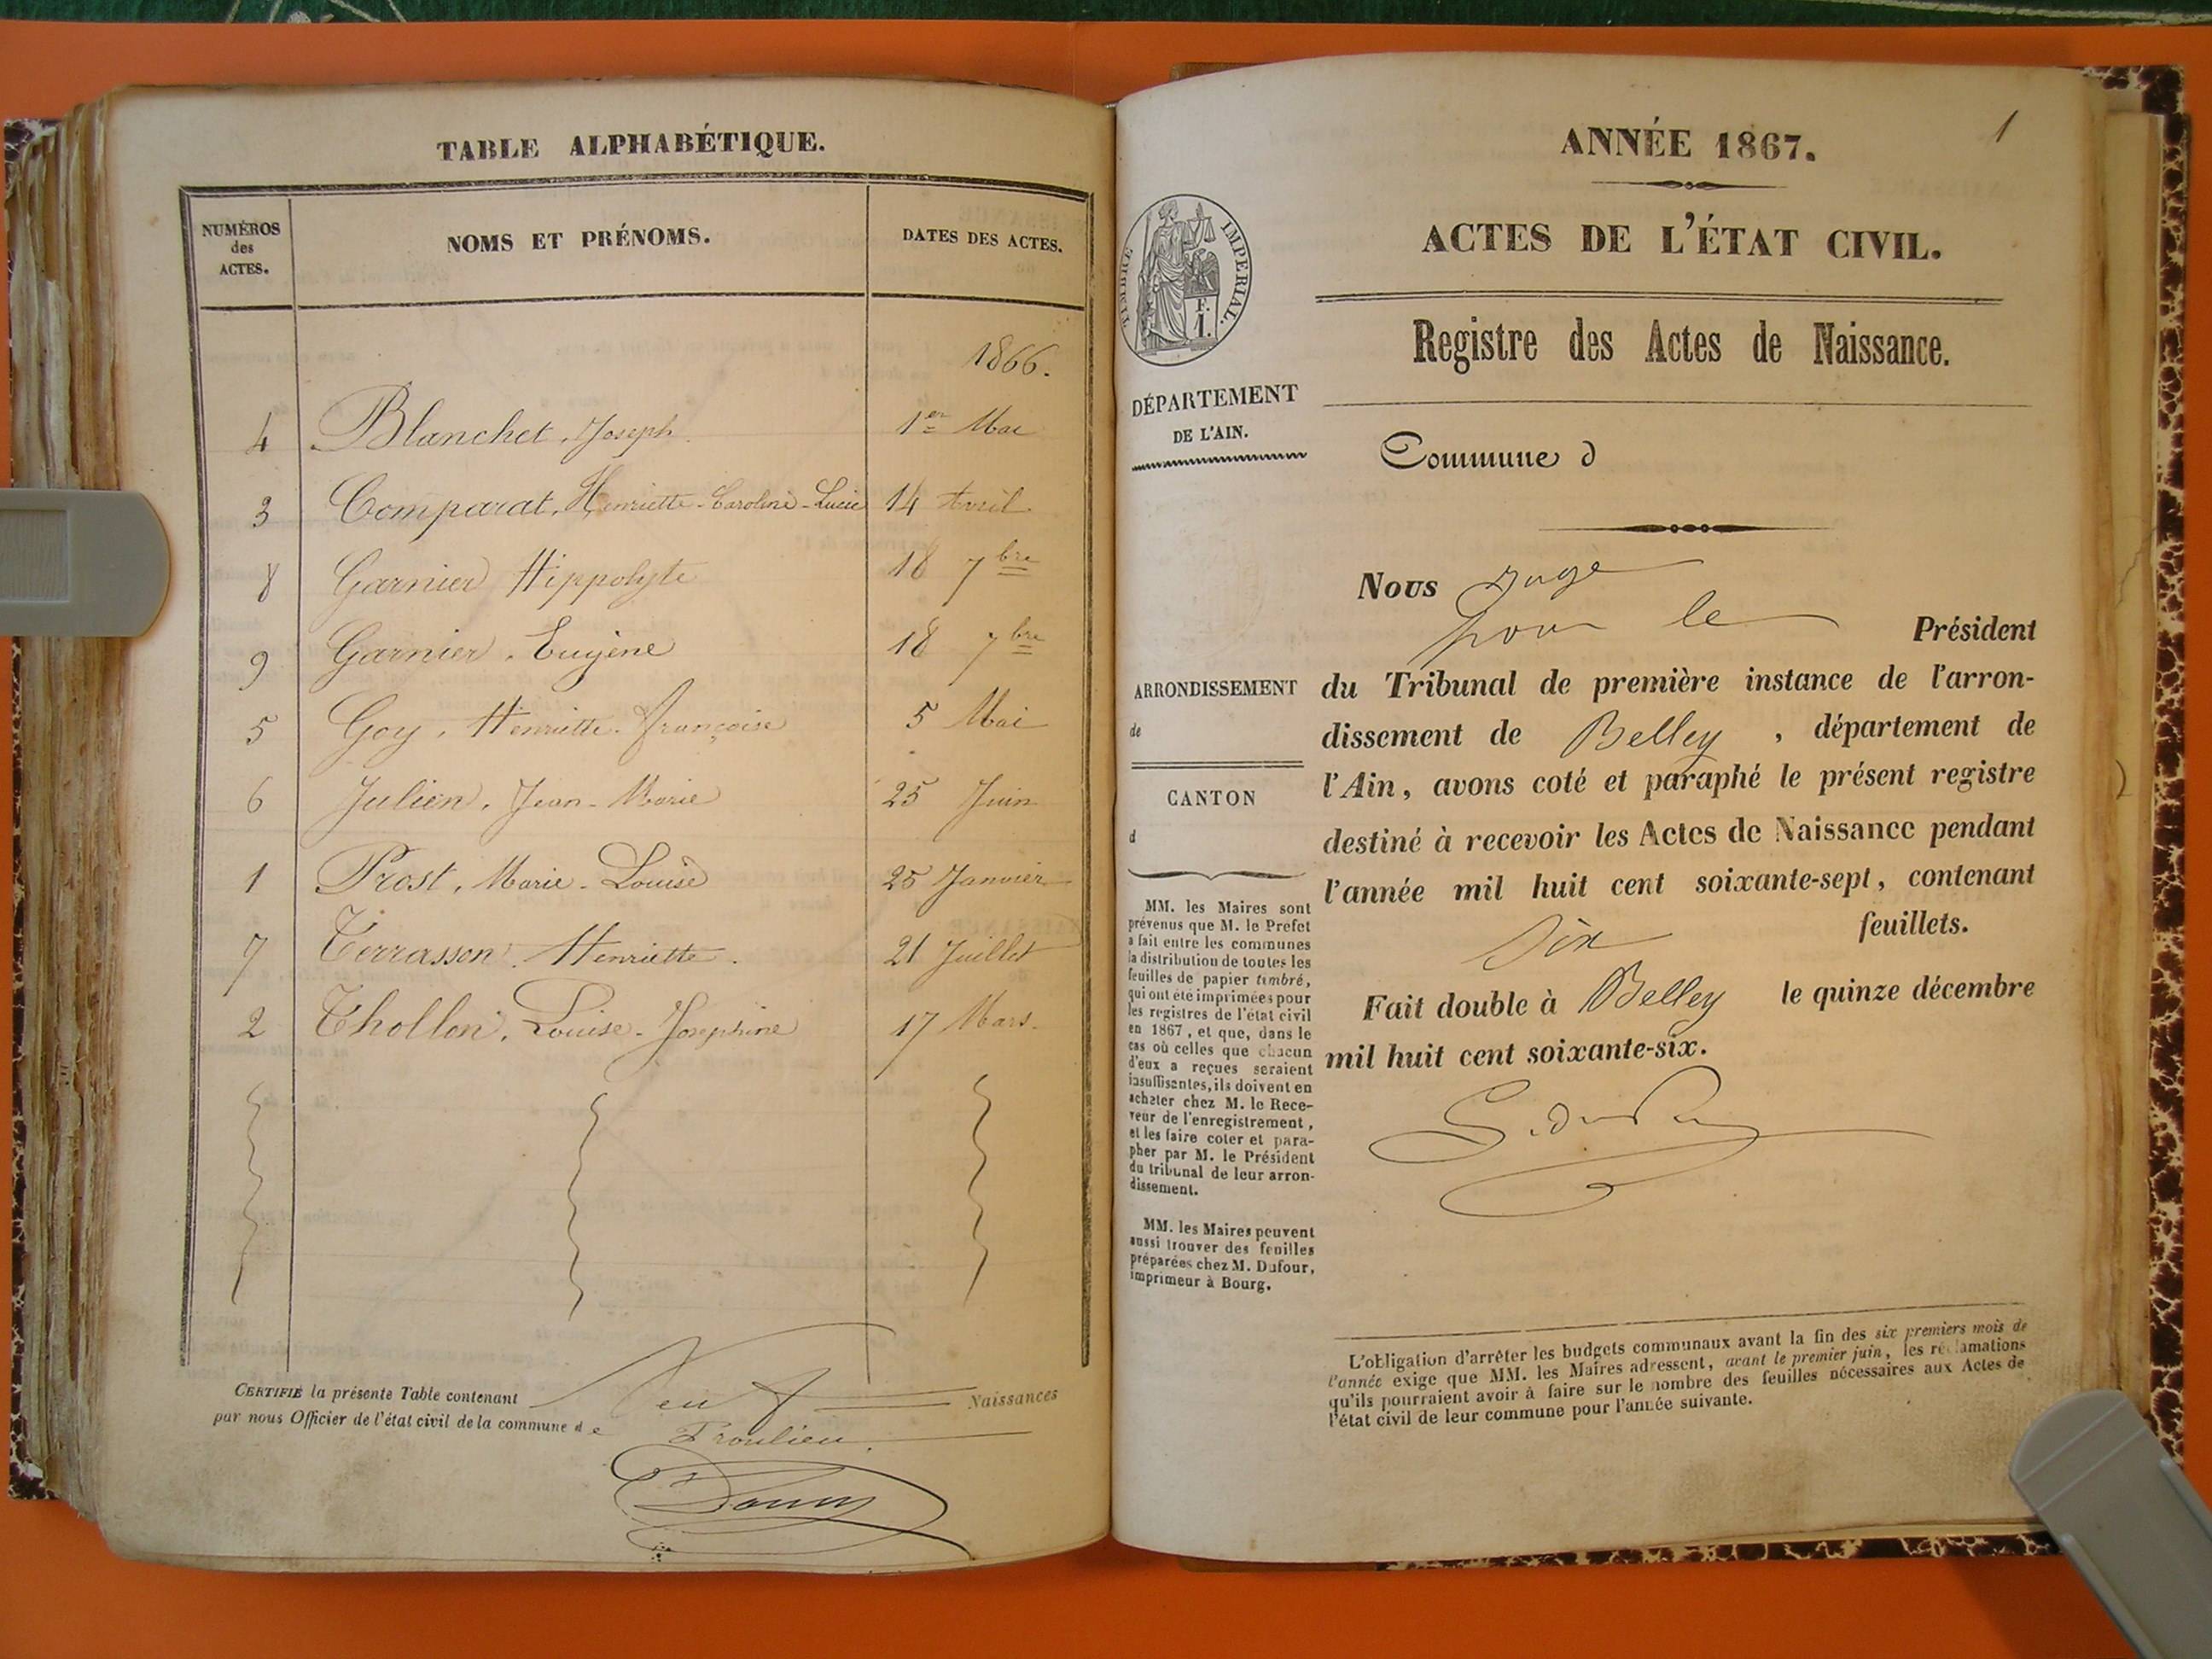 TABLE ALPHABÉTIQUE.
NUMÉROS des ACTES.
NOMS ET PRÉNOMS.
DATES DES ACTES.
1866.
4 Blanchet, Joseph 1er Mai
3 Comparat, Henriette-Caroline-Lucie 14 Avril
8 Garnier Hippolyte 18 7bre
9 Garnier, Eugène 18 7bre
5 Goy, Henriette-françoise 5 Mai
6 Julien, Jean-Marie 25 Juin
1 Prost, Marie-Louise 25 Janvier
7 Terrasson, Henriette. 21 Juillet
2 Thollon, Louise-Joséphine 17 Mars.
CERTIFIÉ la présente Table contenant Neuf Naissances
par nous Officier de l'état civil de la commune de Proulieu.
1
ANNÉE 1867.
ACTES DE L'ÉTAT CIVIL.
Registre des Actes de Naissance.
TIMBRE IMPÉRIAL.
DÉPARTEMENT
DE L'AIN.
Commune d
Nous Juge
pour le Président
du Tribunal de première instance de l'arron-
dissement de Belley, département de
l'Ain, avons coté et paraphé le présent registre
destiné à recevoir les Actes de Naissance pendant
l'année mil huit cent soixante-sept, contenant
six feuillets.
Fait double à Belley le quinze décembre
mil huit cent soixante-six.
ARRONDISSEMENT
de
CANTON
d
MM. les Maires sont
prévenus que M. le Préfet
a fait entre les communes
la distribution de toutes les
feuilles de papier timbré,
qui ont été imprimées pour
les registres de l'état civil
en 1867, et que, dans le
cas où celles que chacun
d'eux a reçues seraient
insuffisantes, ils doivent en
acheter chez M. le Rece-
veur de l'enregistrement,
et les faire coter et para-
pher par M. le Président
du tribunal de leur arron-
dissement.
MM. les Maires peuvent
aussi trouver des feuilles
préparées chez M. Dufour,
imprimeur à Bourg.
L'obligation d'arrêter les budgets communaux avant la fin des six premiers mois de
l'année exige que MM. les Maires adressent, avant le premier juin, les réclamations
qu'ils pourraient avoir à faire sur le nombre des feuilles nécessaires aux Actes de
l'état civil de leur commune pour l'année suivante.